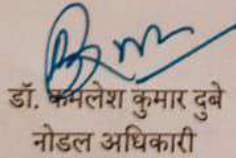 डॉ. कमलेश कुमार दुबे
नोडल अधिकारी